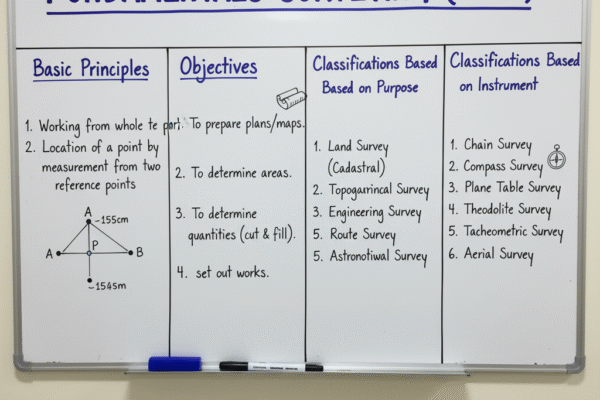 Basic Principles
1. Working from whole te part.
2. Location of a point by
measurement from two
reference points
A
-155cm
P
A
B
-1545m
Objectives
To prepare plans/maps.
2. To determine areas.
3. To determine
quantities (cut & fill).
4. set out works.
Classifications Based
Based on Purpose
1. Land Survey
(Cadastral)
2. Topogarrincal Survey
3. Engineering Survey
5. Route Survey
5. Astronotiwal Survey
Classifications Based
on Instrument
1. Chain Survey
2. Compass Survey
3. Plane Table Survey
4. Theodolite Survey
5. Tacheometric Survey
6. Aerial Survey